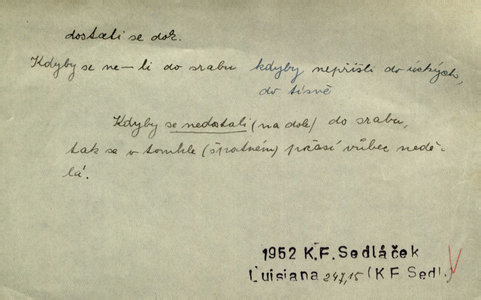 dostali se dož.
Kdyby se ne—li do srabu kdyby nepřišli do úzkých,
do tísně
Kdyby se nedostali (na dole) do srabu,
tak se v tomhle (špatném) počasí vůbec nedě-
lá.
1952 K.F. Sedláček
Luisiana 247,15 (K F Sedl.)